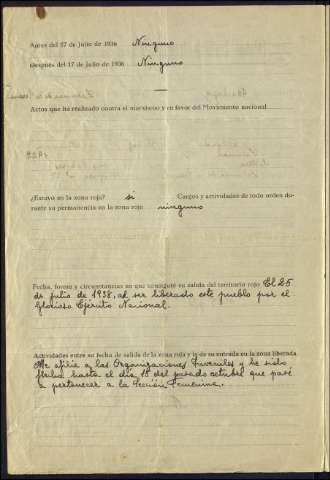 Antes del 17 de Julio de 1936 Ninguno
Después del 17 de Julio de 1936 Ninguno
Actos que ha realizado contra el marxismo y en favor del Movimiento nacional
¿Estuvo en la zona roja? si Cargos y actividades de todo orden du-
rante su permanencia en la zona roja ninguno
Fecha, forma y circunstancias en que consiguió su salida del territorio rojo El 25
de julio de 1938, al ser liberado este pueblo por el
Glorioso Ejército Nacional.
Actividades entre su fecha de salida de la zona roja y la de su entrada en la zona liberada
Me afilié a las Organizaciones Juveniles y he sido
hasta el día 18 del pasado octubre que pasé
a pertenecer a la Sección Femenina.